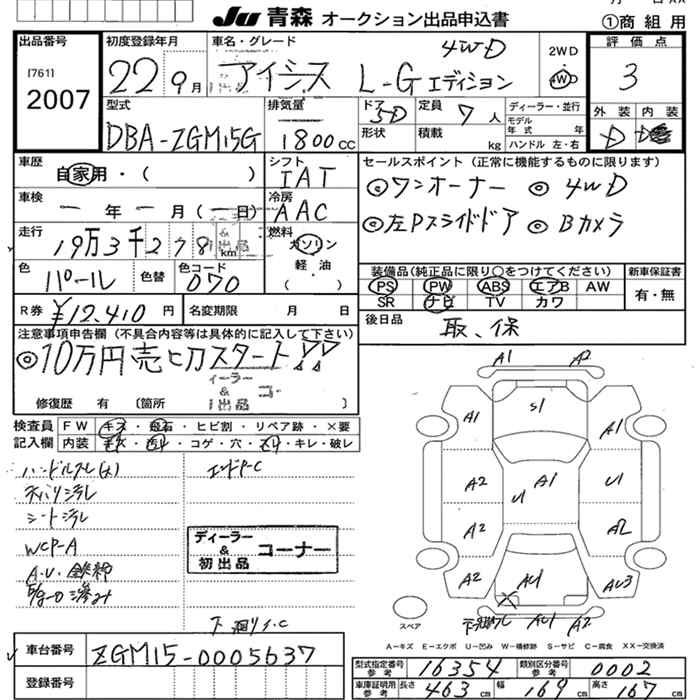 Ju 青森 オークション出品申込書
①商 組 用
出品番号
[761]
2007
初度登録年月
22 9月
車名・グレード
アイシス L-Gエディション
4WD
2WD
4WD
評価点
3
外装 内装
D D
型式
DBA-ZGM15G
排気量
1800cc
ドア
5D
形状
定員 7人
積載 kg
ディーラー・並行
モデル年式 年式
ハンドル 左・右
車歴
自家用・( )
シフト
IAT
車検
一年一月(一日)
冷房
AAC
走行
19万3千278km
燃料
ガソリン
軽・油
( )
色
パール
色替
色コード
070
R券 ¥12,410円
名変期限 月 日
セールスポイント(正常に機能するものに限ります)
◎ワンオーナー ◎4WD
◎左Pスライドドア ◎Bカメラ
装備品(純正品に限り○をつけてください)
PS PW ABS エアB AW
SR ナビ TV カワ
新車保証書
有・無
後日品
取、保
注意事項申告欄(不具合内容等は具体的に記入して下さい)
◎10万円売切スタート!!
修復歴 有 (箇所 )
検査員記入欄
FW キズ・飛石・ヒビ割・リペア跡・×要
内装 キズ・汚れ・コゲ・穴・スリ・キレ・破レ
ハンドルスレ(大)
天バリ汚レ
シート汚レ
WCP-A
エンドP-C
ディーラー & 初出品 コーナー
A1 A2
A1 S1 A1
A2 U1 A1 U1
A2 A2
A2 AU1 AU3
AU1 A2
スペア
A-キズ E-エクボ U-凹み W-補修跡 S-サビ C-腐食 XX-交換済
車台番号
ZGM15-0005637
登録番号
型式指定番号参考 16354
類別区分番号参考 0002
車庫証明用参考 長さ 463cm 幅 169cm 高さ 167cm